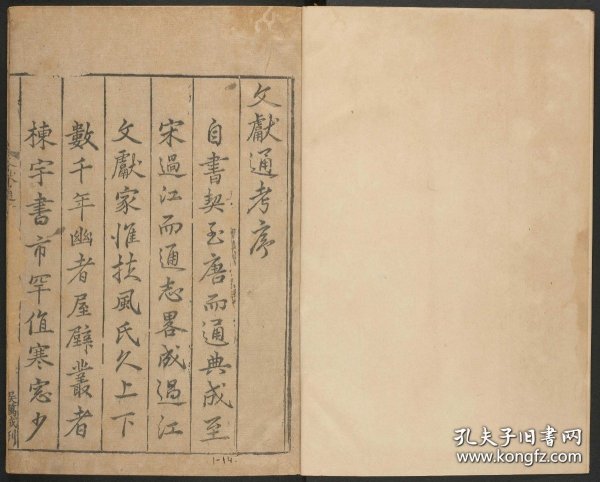 文獻通考序
自書契至唐而通典成至
宋過江而通志畧成過江
文獻家惟扶風氏久上下
數千年幽者屋壁叢者
棟宇書市罕值寒窓少
1-14.
孔夫子旧书网
www.kongfz.com